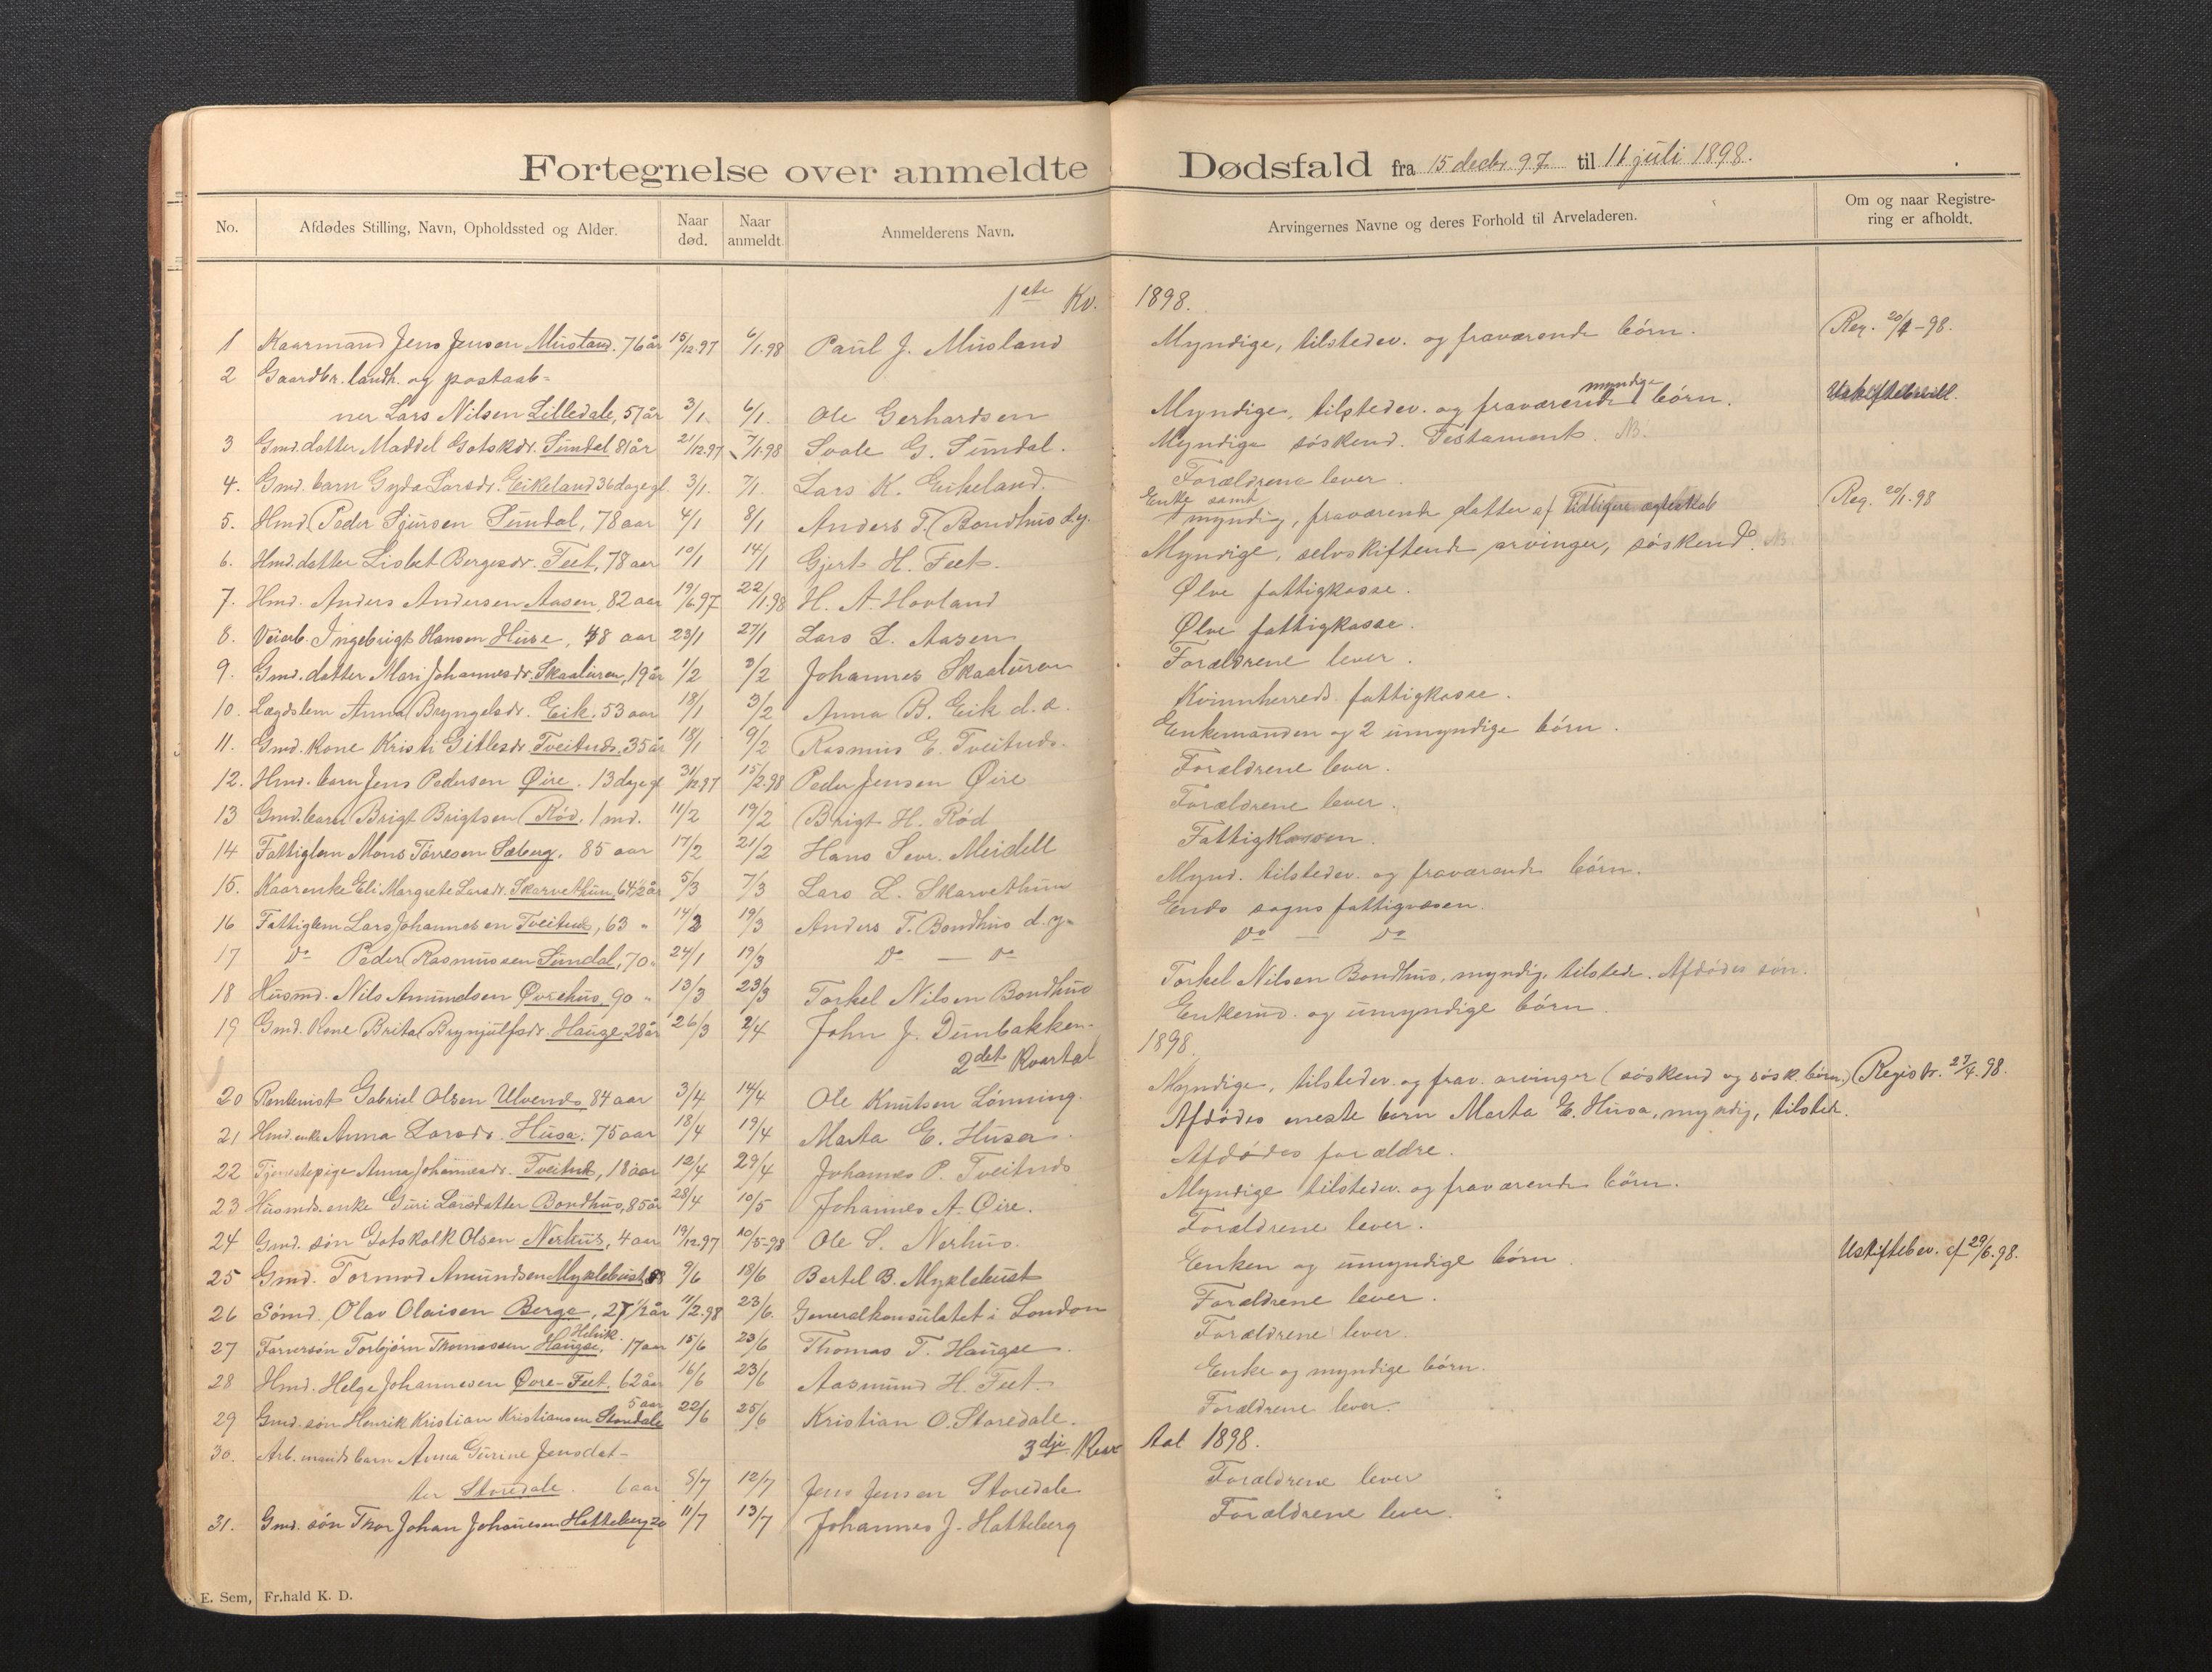 Fortegnelse over anmeldte Dødsfald fra 15 decbr 97 til 11 juli 1898.
No. Afdødes Stilling, Navn, Opholdssted og Alder. Naar død. Naar anmeldt. Anmelderens Navn. Arvingernes Navne og deres Forhold til Arveladeren. Om og naar Registrering er afholdt.
1ste Kv. 1898.
1 Kaarmand Jens Jensen Musland. 76 år 15/12.97 6/1.98 Paul J. Musland Myndige, tilstedev. og fraværende børn. Reg. 20/1-98.
2 Gaardbr. landh. og postaab-
ner Lars Nilsen Lilledale, 57 år 3/1. 6/1. Ole Gerhardsen Myndige, tilstedev. og fraværende myndige børn. Uskiftebevill.
3 Gmd. datter Maddel Gotskdr. Sundal 81 år 21/12.97 7/1.98 Svale G. Sundal. Myndige søskend. Testament. NB.
4. Gmd. barn Gyda Larsdr. Eikeland 36 dage gl 3/1. 7/1. Lars K. Eikeland. Forældrene lever.
5. Hmd. Peder Sjursen Sundal, 78 aar 4/1 8/1 Anders T. Bondhus d.y. Enke samt myndig, fraværende datter af tidligere ægteskab Reg. 20/1.98
6. Hmd. datter Lisbet Bergesdr. Feet, 78 aar 10/1 14/1 Gjert H. Feet. Myndige, selvskiftende arvinger, søskend. NB.
7. Hmd. Anders Andersen Aasen, 82 aar 19/6.97 22/1.98 H. A. Hovland Ølve fattigkasse.
8. Veiarb. Ingebrigt Hansen Huse, 48 aar 23/1 27/1 Lars L. Aasen Ølve fattigkasse.
9. Gmd. datter Mari Johannesdr. Skaaluren, 19 år 1/2 3/2 Johannes Skaaluren Forældrene lever.
10. Lægdslem Anna Bryngelsdr. Eik. 53 aar 18/1 3/2 Anna B. Eik d.æ. Kvinnherreds fattigkasse.
11. Gmd. kone Kristi Gitlesdr Tveitnds. 35 år 18/1 9/2 Rasmus E. Tveitnds. Enkemanden og 2 umyndige børn.
12. Hmd. barn Jens Pedersen Øire. 13 dage gl 31/12.97 15/2.98 Peder Jensen Øire Forældrene lever.
13 Gmd. barn Brigt Brigtsen Rød. 1 md. 11/2 19/2 Brigt H. Rød Forældrene lever.
14 Fattiglem Mons Torresen Sæberg. 85 aar 17/2 21/2 Hans Sevr. Meidell Fattigkassen.
15. Kaarenke Eli Margrete Larsdr. Skarvethun, 64½ år 5/3 7/3 Lars L. Skarvethun Mynd. tilstedev. og fraværende børn.
16 Fattiglem Lars Johannesen Tveitnds, 63 " 14/3 19/3 Anders T. Bondhus d.y. Ends sogns fattigvæsen.
17 Do Peder Rasmussen Sundal, 70 " 24/1 19/3 Do — Do Do — Do
18 Husmd. Nils Amundsen Øvrehus 90 " 13/3 23/3 Torkel Nilsen Bondhus Torkel Nilsen Bondhus, myndig, tilstede. Afdødes søn.
19 Gmd. kone Brita Brynjulfsdr. Hauge, 28 år 26/3 2/4 John J. Dunbakken. Enkemd. og umyndige børn.
2det Kvartal 1898.
20 Rentenist Gabriel Olsen Ulvends 84 aar 3/4 14/4 Ole Knutsen Lønning. Myndige, tilstedev. og frav. arvinger (søskend og søsk. børn) Registr. 27/4.98.
21 Hmd. enke Anna Larsdr. Husa. 75 aar 18/4 19/4 Marta E. Husa Afdødes eneste barn Marta E. Husa, myndig, tilstede.
22 Tjenestepige Anna Johannesdr. Tveitnds, 18 aar 12/4 29/4 Johannes P. Tveitnds Afdødes forældre.
23 Husmds. enke Guri Larsdatter Bondhus, 85 år 28/4 10/5 Johannes A. Øire. Myndige tilstedev. og fraværende børn.
24 Gmd. søn Gotskalk Olsen Nerhus, 4 aar 19/12.97 10/5-98 Ole S. Nerhus. Forældrene lever.
25 Gmd. Tormod Amundsen Myklebust 58 9/6 18/6 Bertel B. Myklebust Enken og umyndige børn Uskiftebev. af 29/6.98.
26 Sømd. Olav Olaisen Berge, 27½ år 11/2.98 23/6. Generalkonsulatet i London Forældrene lever.
27 Farversøn Torbjørn Thomassen Helvik. Haugse, 17 aar 15/6 23/6 Thomas T. Haugse Forældrene lever.
28 Hmd. Helge Johannesen Øvre-Feet. 62 aar 16/6 23/6 Aasmund H. Feet. Enke og myndige børn.
29 Gmd. søn Henrik Kristian Kristiansen Storedale 5 aar 22/6 25/6 Kristian O. Storedale. Forældrene lever.
3dje Kvartal 1898.
30. Arb. mands barn Anna Gurine Jensdat-
ter Storedale. 6 aar 8/7 12/7 Jens Jensen Storedale Forældrene lever
31. Gmd. søn Thor Johan Johannesen Hatteberg 20 11/7 13/7 Johannes J. Hatteberg Forældrene lever.
E. Sem, Fr.hald K. D.